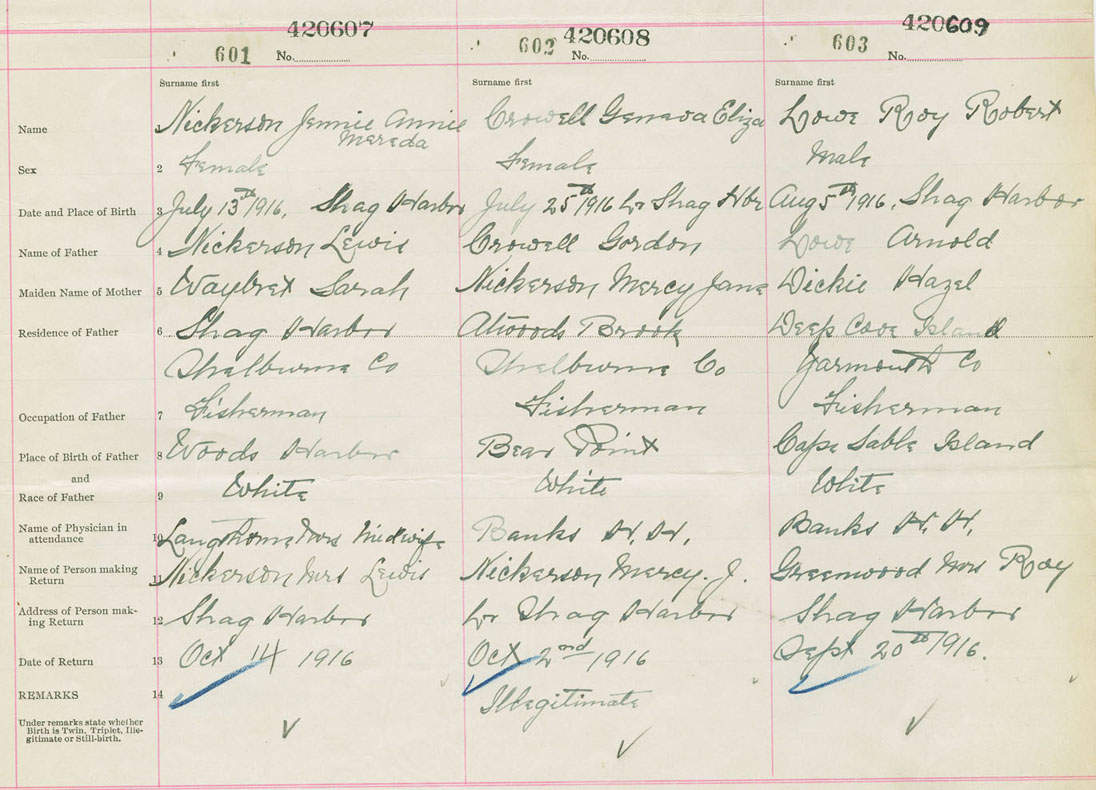 420607 420608 420609
601 No. 602 No. 603 No.
Surname first Surname first Surname first
Name Nickerson Jennie Annie Crowell Geneva Eliza Lowe Roy Robert
Mereda
Sex 2 Female Female Male
Date and Place of Birth 3 July 13th 1916, Shag Harbor July 25th 1916 Lr Shag Hbr Aug 5th 1916, Shag Harbor
Name of Father 4 Nickerson Lewis Crowell Gordon Lowe Arnold
Maiden Name of Mother 5 Waybret Sarah Nickerson Mercy Jane Dickie Hazel
Residence of Father 6 Shag Harbor Atwoods Brook Deep Cove Island
Shelburne Co Shelburne Co Yarmouth Co
Occupation of Father 7 Fisherman Fisherman Fisherman
Place of Birth of Father 8 Woods Harbor Bear Point Cape Sable Island
and
Race of Father 9 White White White
Name of Physician in
attendance 10 Mrs Midwife Banks H. H. Banks H. H.
Name of Person making
Return 11 Nickerson Mrs Lewis Nickerson Mercy. J. Greenwood Mrs Roy
Address of Person mak-
ing Return 12 Shag Harbor Lr Shag Harbor Shag Harbor
Date of Return 13 Oct 14 1916 Oct 2nd 1916 Sept 20th 1916.
REMARKS 14 Illegitimate
Under remarks state whether
Birth is Twin, Triplet, Ille-
gitimate or Still-birth.